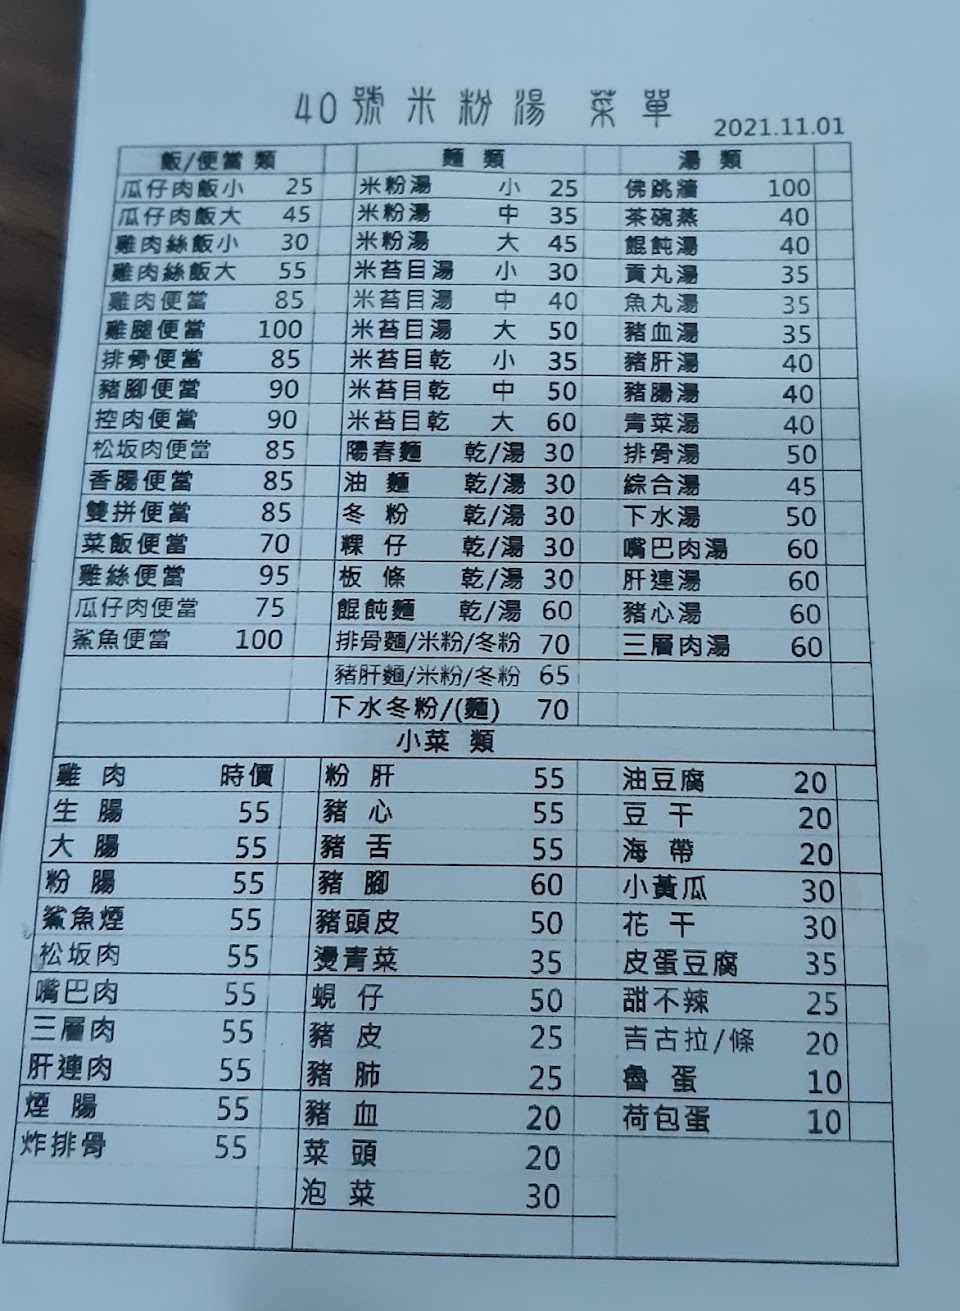 40號米粉湯 菜單
2021.11.01
飯/便當 類 麵 類 湯 類
瓜仔肉飯小 25 米粉湯 小 25 佛跳牆 100
瓜仔肉飯大 45 米粉湯 中 35 茶碗蒸 40
雞肉絲飯小 30 米粉湯 大 45 餛飩湯 40
雞肉絲飯大 55 米苔目湯 小 30 貢丸湯 35
雞肉便當 85 米苔目湯 中 40 魚丸湯 35
雞腿便當 100 米苔目湯 大 50 豬血湯 35
排骨便當 85 米苔目乾 小 35 豬肝湯 40
豬腳便當 90 米苔目乾 中 50 豬腸湯 40
控肉便當 90 米苔目乾 大 60 青菜湯 40
松坂肉便當 85 陽春麵 乾/湯 30 排骨湯 50
香腸便當 85 油 麵 乾/湯 30 綜合湯 45
雙拼便當 85 冬 粉 乾/湯 30 下水湯 50
菜飯便當 70 粿 仔 乾/湯 30 嘴巴肉湯 60
雞絲便當 95 板 條 乾/湯 30 肝連湯 60
瓜仔肉便當 75 餛飩麵 乾/湯 60 豬心湯 60
鯊魚便當 100 排骨麵/米粉/冬粉 70 三層肉湯 60
豬肝麵/米粉/冬粉 65
下水冬粉/(麵) 70
小菜 類
雞 肉 時價 粉 肝 55 油豆腐 20
生 腸 55 豬 心 55 豆 干 20
大 腸 55 豬 舌 55 海 帶 20
粉 腸 55 豬 腳 60 小黃瓜 30
鯊魚煙 55 豬頭皮 50 花 干 30
松坂肉 55 燙青菜 35 皮蛋豆腐 35
嘴巴肉 55 蜆 仔 50 甜不辣 25
三層肉 55 豬 皮 25 吉古拉/條 20
肝連肉 55 豬 肺 25 魯 蛋 10
煙 腸 55 豬 血 20 荷包蛋 10
炸排骨 55 菜 頭 20
泡 菜 30